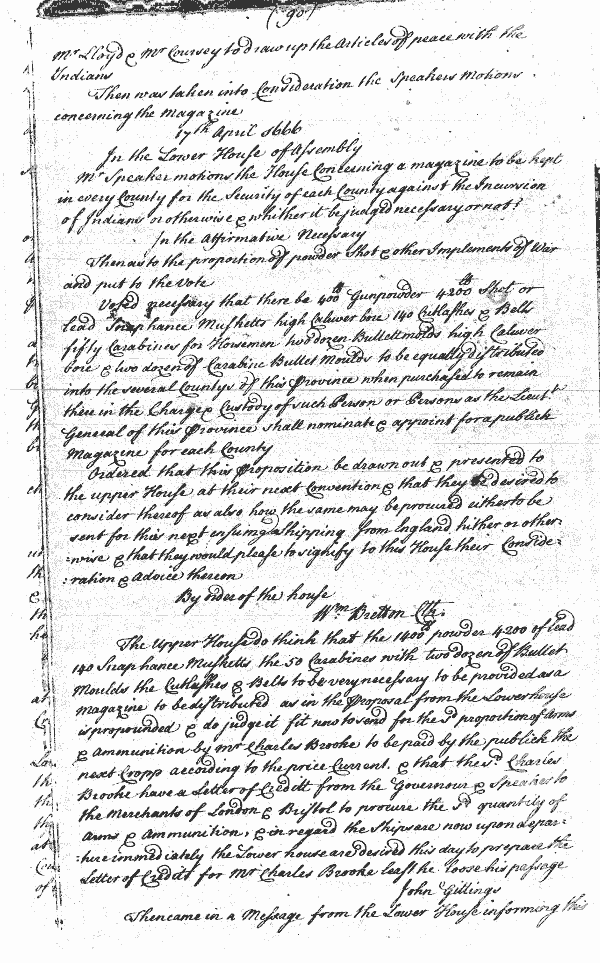 (90)
Mr Lloyd & Mr Coursey to draw up the Articles of peace with the
Indians
Then was taken into Consideration the Speakers Motions
concerning the Magazine
17th April 1666
In the Lower House of Assembly
Mr Speaker motions the House Concerning a magazine to be kept
in every County for the Security of each County against the Incursion
of Indians or otherwise & whither it be judged necessary or not?
In the Affirmative Necessary
Then as to the proportion of powder Shot & other Implements of War
and put to the Vote
Voted necessary that there be 400lb Gunpowder 4200lb Shot or
lead Snaphance Musketts high Caluver bore 140 Cutlashes & Belts
fifty Carabines for Horsemen two dozen Bulletmolds high Caluver
bore & two dozen of Carabine Bullet Moulds to be equally distributed
into the several Countys of this Province when purchased to remain
there in the Charge & Custody of such Person or Persons as the Lieutt
General of this Province shall nominate & appoint for a publick
Magazine for each County
Ordered that this Proposition be drawn out & presented to
the upper House at their next Convention & that they be desired to
consider thereof as also how the same may be procured either to be
sent for this next ensuing shipping from England hither or other-
:wise & that they would please to signify to this House their Conside-
:ration & Advice thereon
By order of the house
Wm Bretton Clk:
The Upper House do think that the 1400lb powder 4200 of lead
140 Snaphance Musketts the 50 Carabines with two dozen of Bullet
Moulds the Cutlashes & Belts to be very necessary to be provided as a
Magazine to be distributed as in the Proposal from the Lower house
is propounded & do judge it fit now to send for the Sd proportion of Arms
& Ammunition by Mr Charles Brooke to be paid by the publick the
next Cropp according to the price Current. & that the sd Charles
Brooke have a Letter of Creditt from the Governour & Speaker to
the Merchants of London & Bristol to procure the Sd quantity of
Arms & Ammunition, & in regard the Ships are now upon depar-
:ture immediately the Lower house are desired this day to prepare the
Letter of Creditt for Mr Charles Brooke least he loose his passage
John Gillings
Then came in a Message from the Lower House informing this